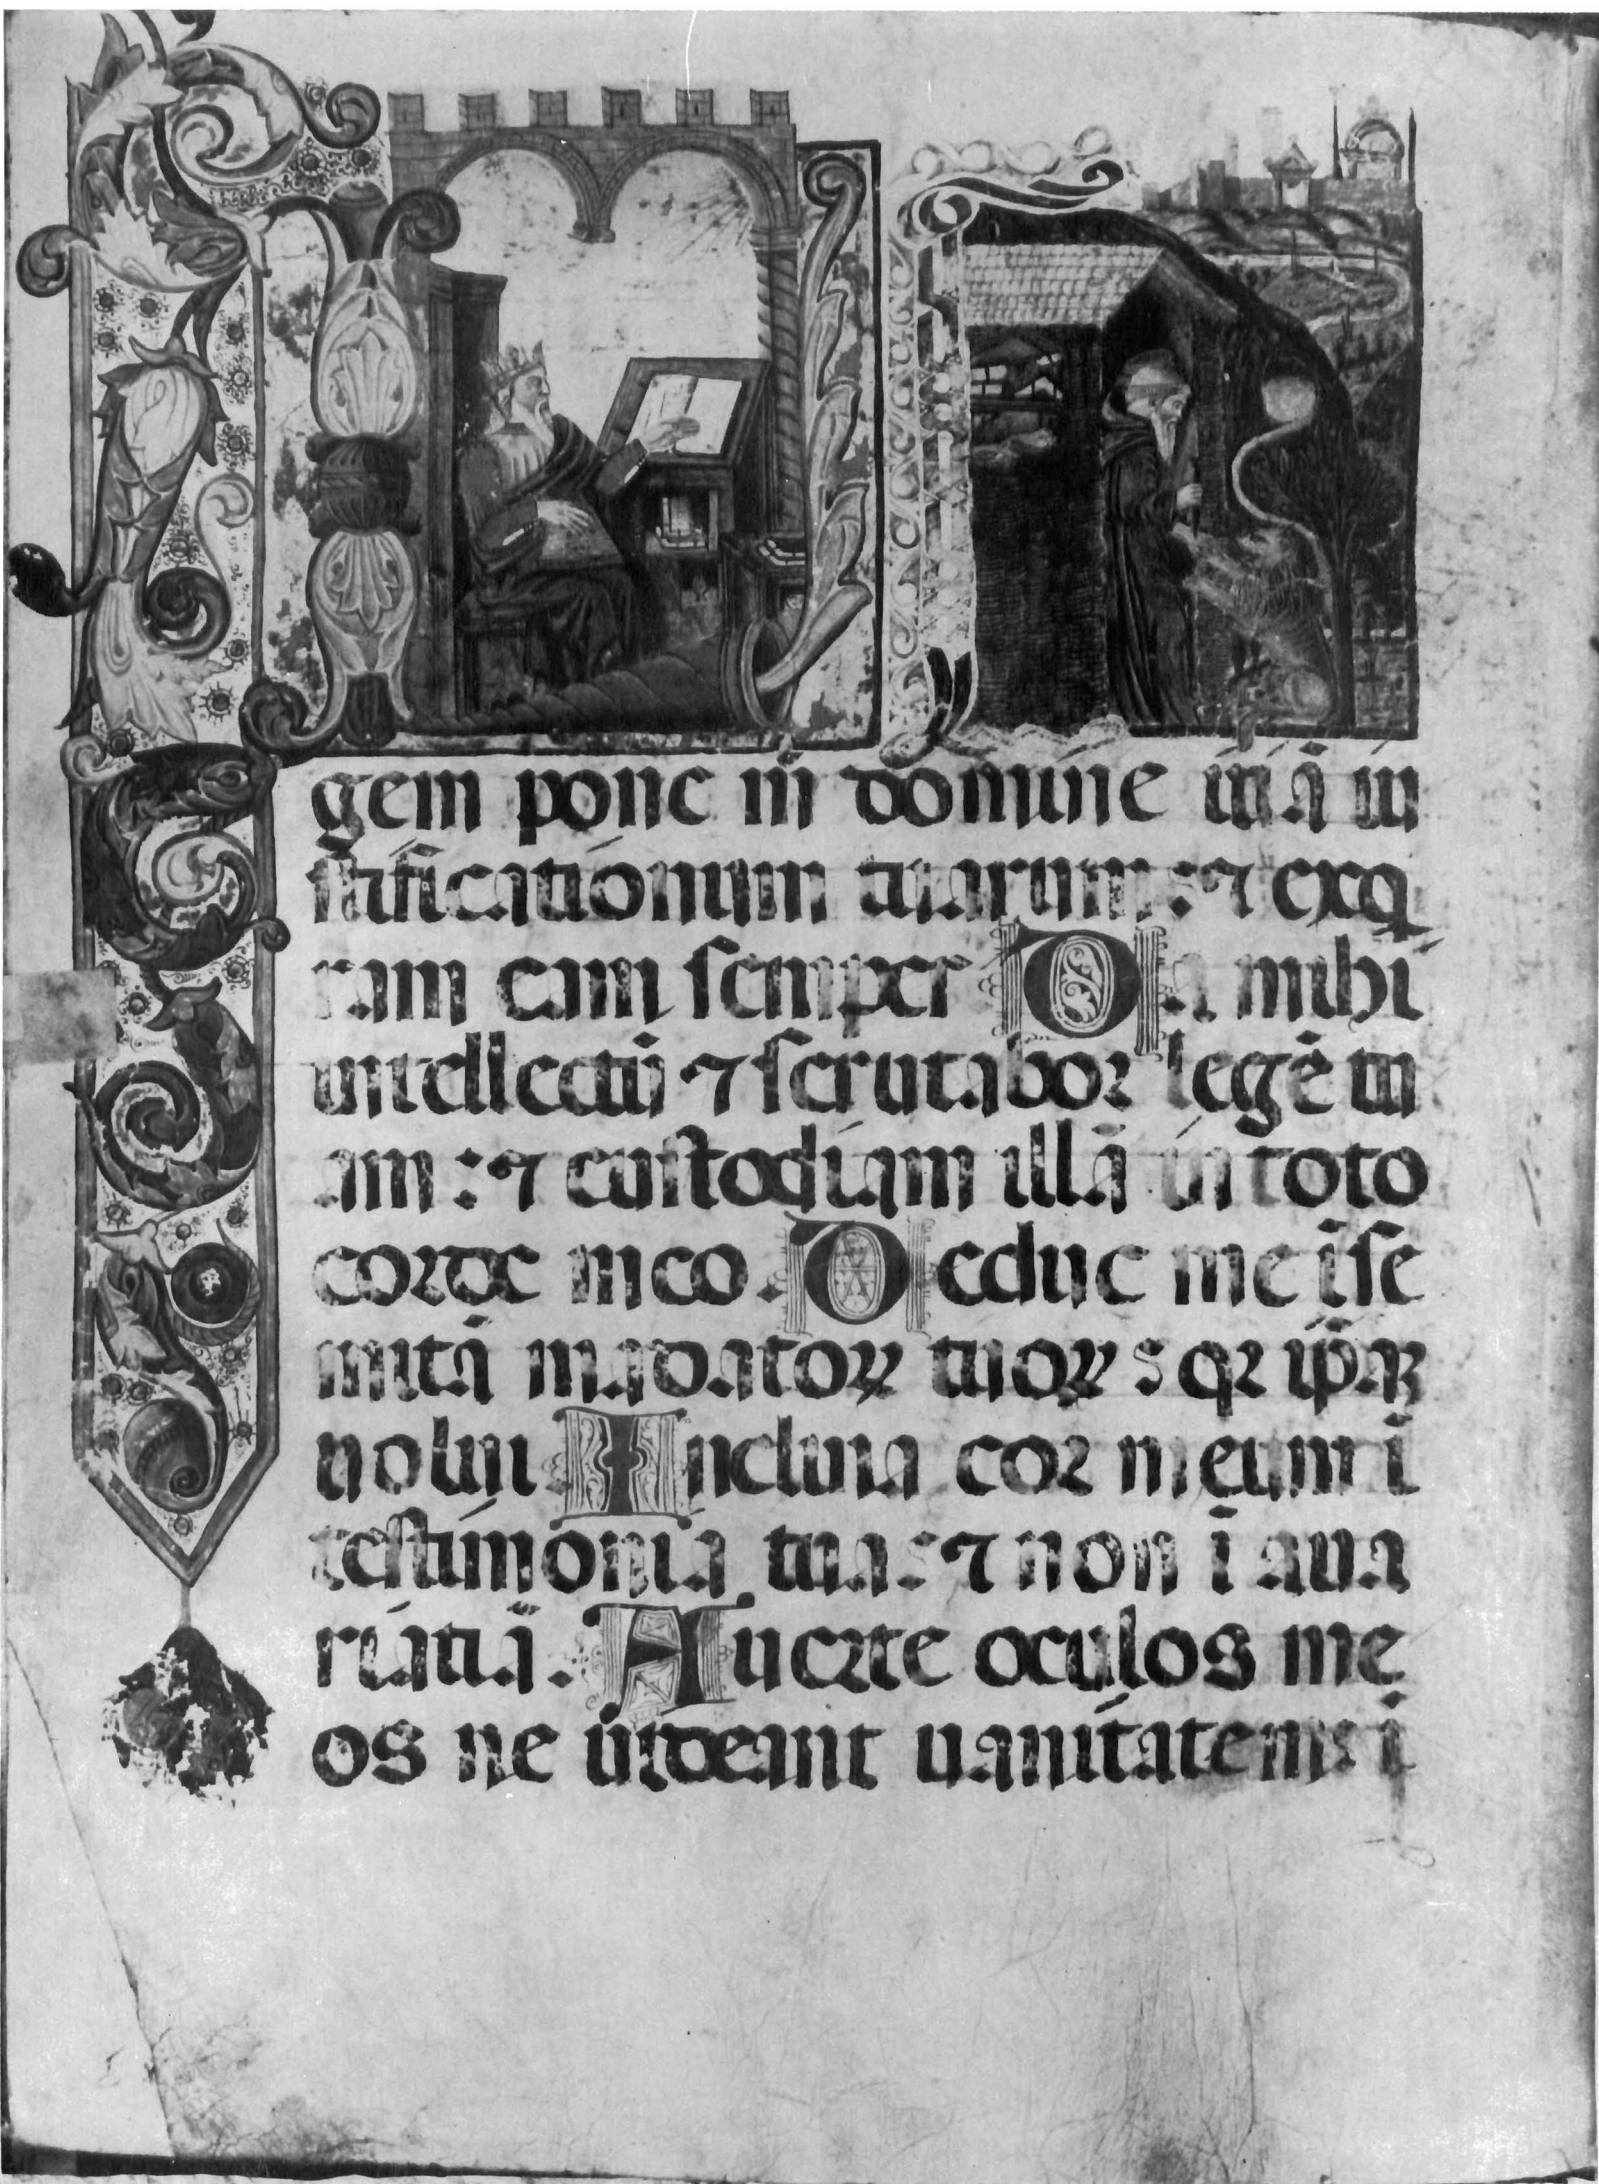 LE
gem pone m̄ domine uiā iu
stificationum tuarum : ⁊ exq
ram eam semper Da mihi
intellectū ⁊ scrutabor legē tu
am : ⁊ custodiam illā in toto
corde meo . Deduc me ī se
mitā mādatoꝝ tuoꝝ : qꝛ ip̄aꝫ
uolui Inclina cor meum ī
testimonia tua : ⁊ non ī aua
ritiā . Auerte oculos me
os ne uideant uanitatem : ī